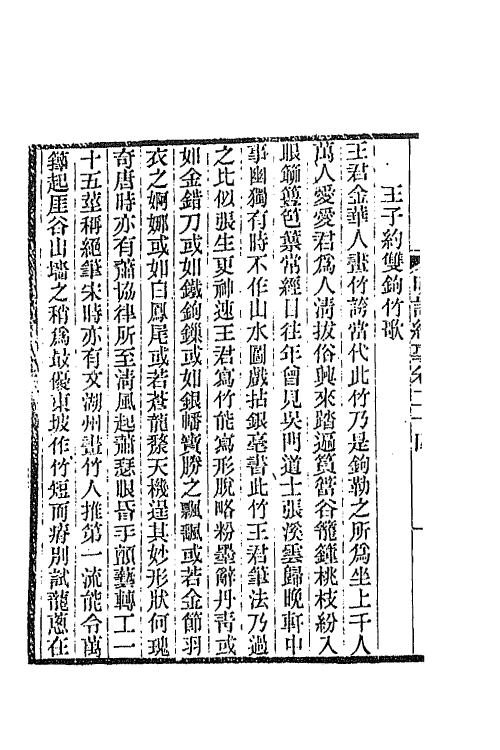 王子約雙鉤竹歌
王君金華人畫竹誇當代此竹乃是鉤勒之所爲坐上千人
萬人愛愛君爲人淸拔俗興來踏遍篔簹谷籠鍾桃枝紛入
眼篩簜笆葉常經目往年曾見吳門道士張溪雲歸晚軒中
事幽獨有時不作山水圖戲拈銀毫書此竹王君筆法乃過
之比似張生更神速王君寫竹能寫形脫略粉墨辭丹靑或
如金錯刀或如鐵鉤鏁或如銀幡寶勝之飄颻或若金節羽
衣之婀娜或如白鳳尾或若蒼龍鬃天機逞其妙形狀何瑰
奇唐時亦有蕭協律所至淸風起蕭瑟眼昏手顫藝轉工一
十五莖稱絕筆宋時亦有文湖州畫竹人推第一流能令萬
籟起厓谷山墻之稍爲最優東坡作竹短而瘠別試龍蔥在